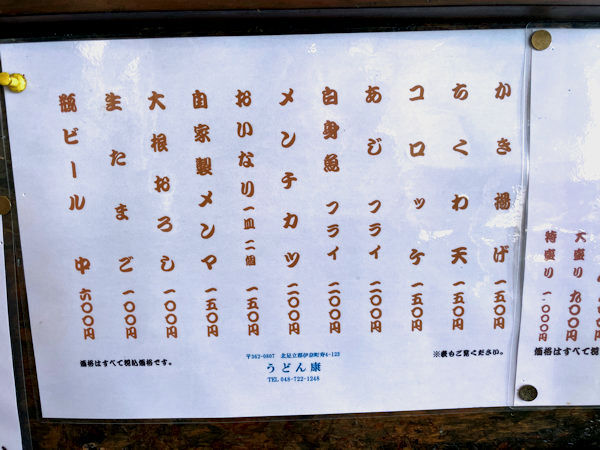 かき揚げ 一五〇円
ちくわ天 一五〇円
コロッケ 一五〇円
あじフライ 二〇〇円
白身魚フライ 二〇〇円
メンチカツ 二〇〇円
おいなり 一皿 二個 一五〇円
自家製メンマ 一五〇円
大根おろし 一〇〇円
生たまご 一〇〇円
瓶ビール 中 六〇〇円
※裏もご覧ください。
価格はすべて税込価格です。
〒362-0807 北足立郡伊奈町寿4-123
うどん康
TEL 048-722-1248
大盛り 九〇〇円
特盛り 一、〇〇〇円
価格はすべて税